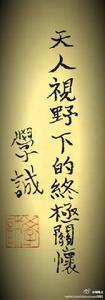 天人視野下的終極關懷
學誠